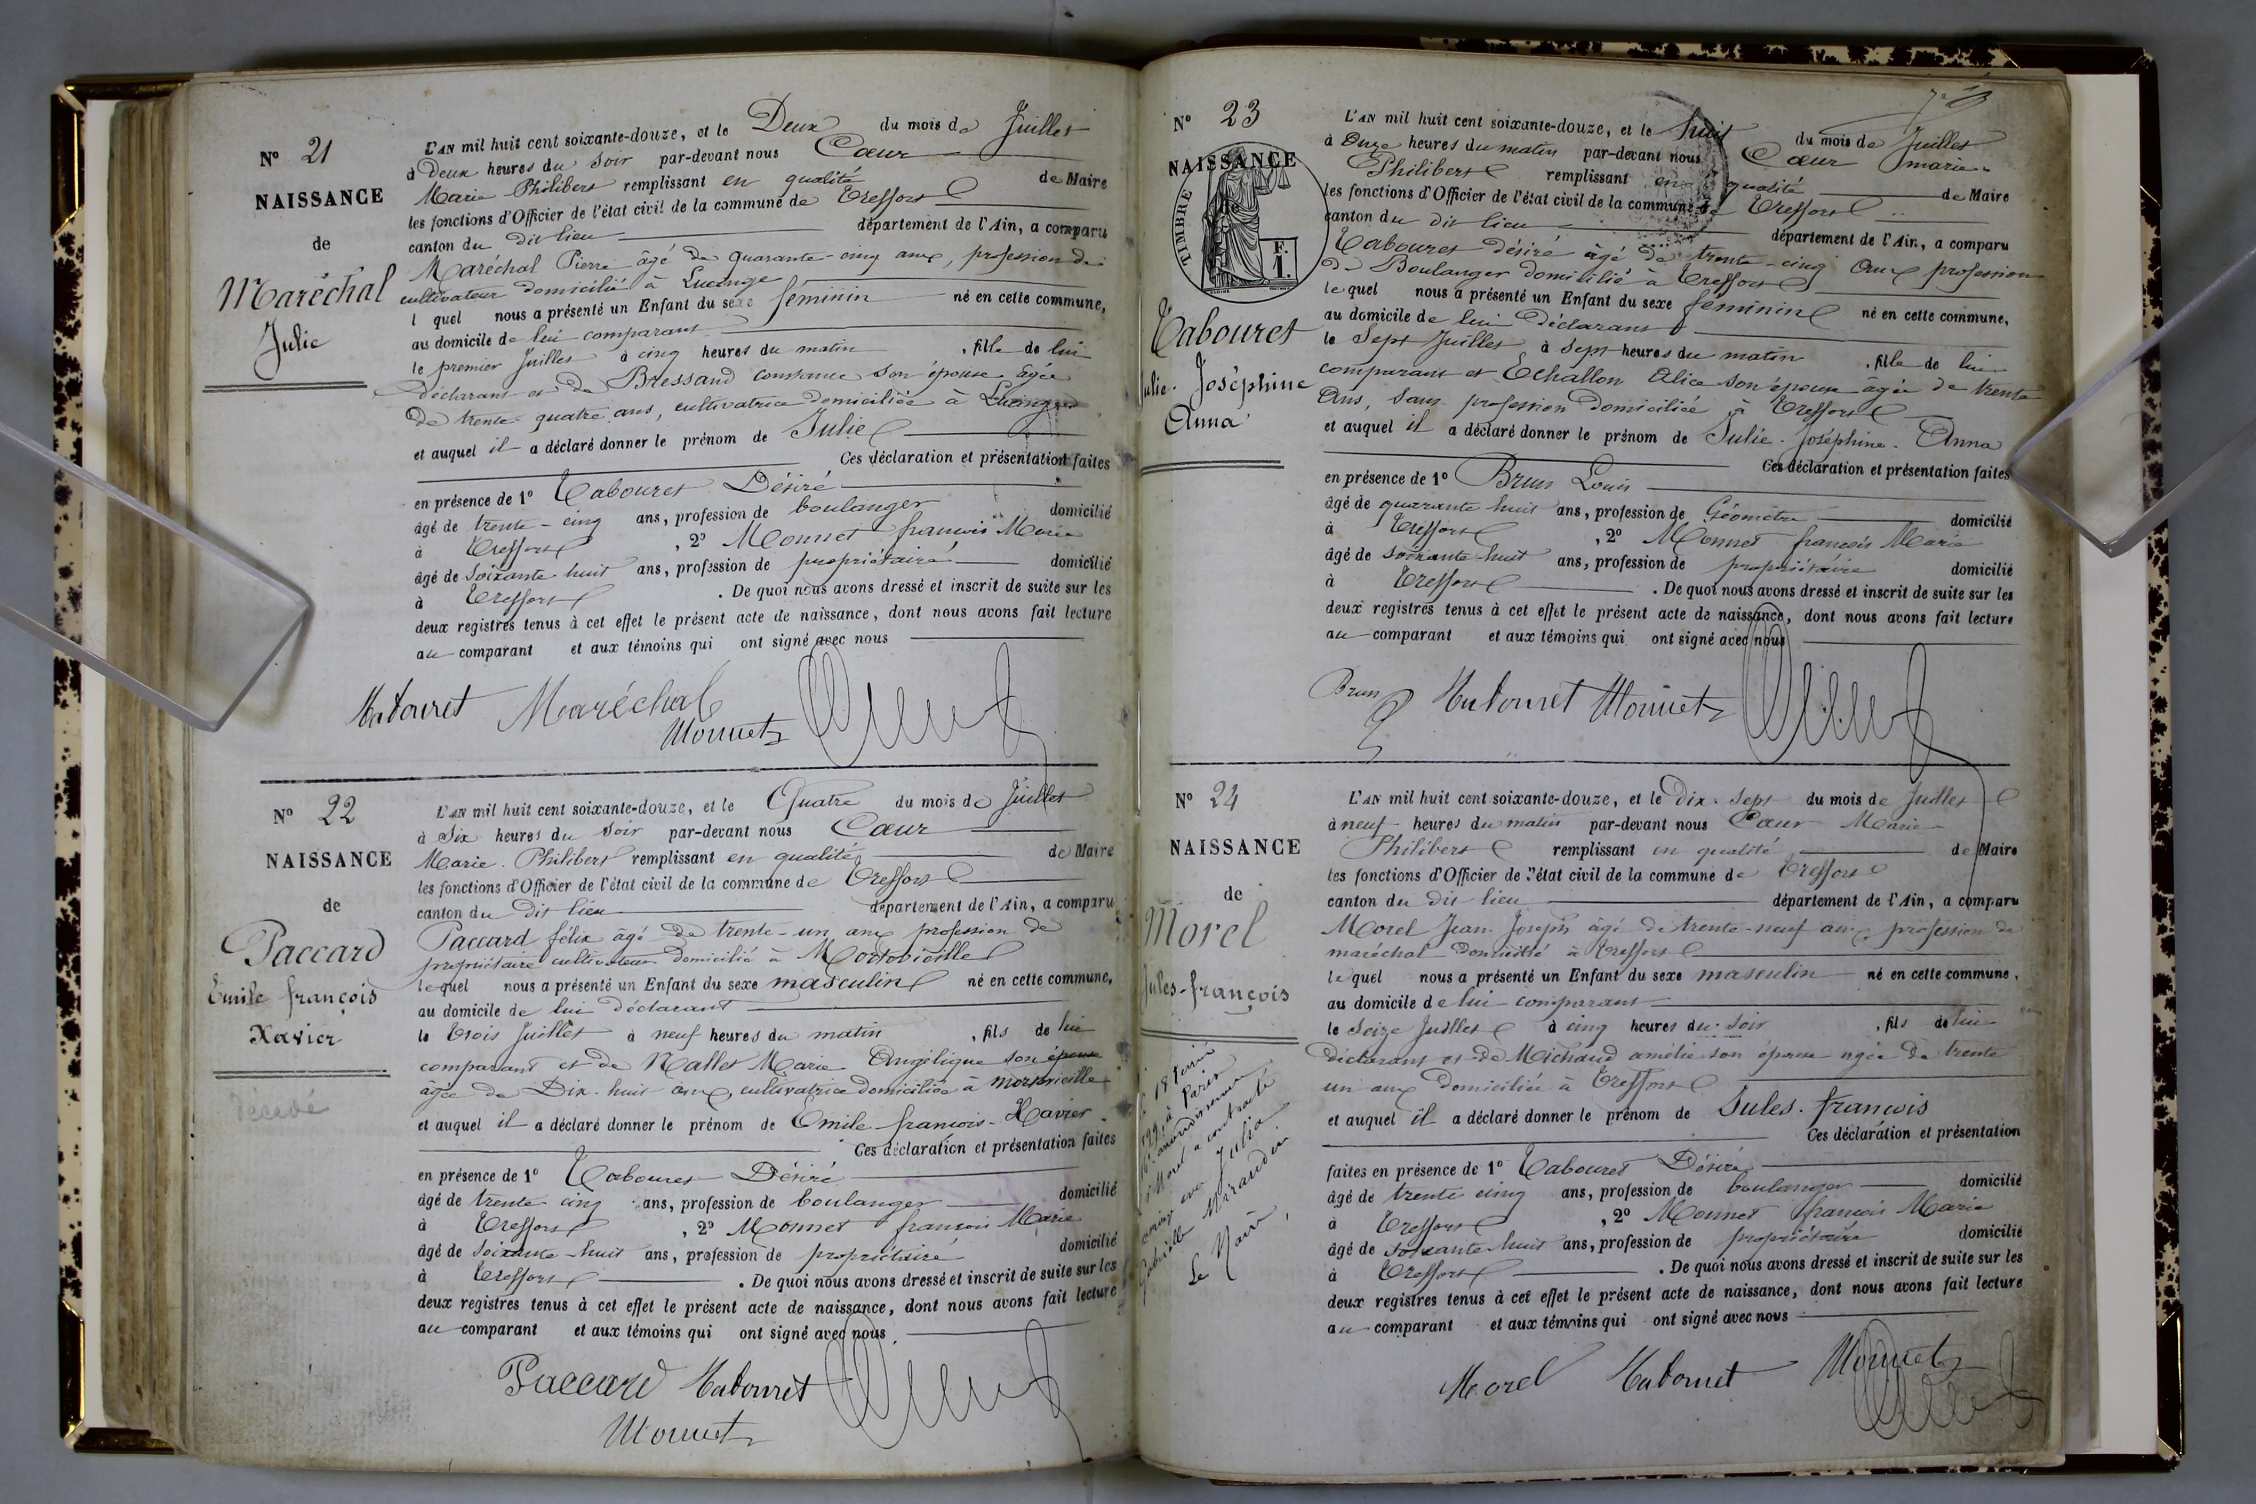 N° 21
NAISSANCE
de
Maréchal
Julie
L'AN mil huit cent soixante-douze, et le Deux du mois de Juillet
à Deux heures du soir par-devant nous Cœur
Marie Philibert remplissant en qualité de Maire
les fonctions d'Officier de l'état civil de la commune de Treffort
canton du dit lieu département de l'Ain, a comparu
Maréchal Pierre âgé de quarante-cinq ans, profession de
cultivateur domicilié à Lucinge
l quel nous a présenté un Enfant du sexe féminin né en cette commune,
au domicile de lui comparant
le premier Juillet à cinq heures du matin, fille de lui
déclarant et de Bressand constance son épouse âgée
de trente quatre ans, cultivatrice domiciliée à Lucinge
et auquel il a déclaré donner le prénom de Julie
Ces déclaration et présentation faites
en présence de 1° Tabouret Désiré
âgé de trente-cinq ans, profession de boulanger domicilié
à Treffort, 2° Monnet françois Marie
âgé de soixante huit ans, profession de propriétaire domicilié
à Treffort. De quoi nous avons dressé et inscrit de suite sur les
deux registres tenus à cet effet le présent acte de naissance, dont nous avons fait lecture
au comparant et aux témoins qui ont signé avec nous
Tabouret Maréchal
Monnet
N° 22
NAISSANCE
de
Paccard
Emile françois
Xavier
Décédé
L'AN mil huit cent soixante-douze, et le Quatre du mois de Juillet
à Six heures du soir par-devant nous Cœur
Marie. Philibert remplissant en qualité de Maire
les fonctions d'Officier de l'état civil de la commune de Treffort
canton du dit lieu département de l'Ain, a comparu
Paccard félix âgé de trente-un ans profession de
propriétaire cultivateur domicilié à Montovieille
lequel nous a présenté un Enfant du sexe masculin né en cette commune,
au domicile de lui déclarant
le trois Juillet à neuf heures du matin, fils de lui
comparant et de Nallet Marie Angélique son épouse
âgée de Dix-huit ans, cultivatrice domiciliée à
et auquel il a déclaré donner le prénom de Emile-françois-Xavier.
Ces déclaration et présentation faites
en présence de 1° Tabouret Désiré
âgé de trente cinq ans, profession de boulanger domicilié
à Treffort, 2° Monnet françois Marie
âgé de soixante-huit ans, profession de propriétaire domicilié
à Treffort. De quoi nous avons dressé et inscrit de suite sur les
deux registres tenus à cet effet le présent acte de naissance, dont nous avons fait lecture
au comparant et aux témoins qui ont signé avec nous.
Paccard Tabouret
Monnet
N° 23
NAISSANCE
de
TIMBRE
F.
1.
Tabouret
Julie. Joséphine
Anna
L'AN mil huit cent soixante-douze, et le huit du mois de Juillet
à Onze heures du matin par-devant nous Cœur marie-
Philibert remplissant en qualité de Maire
les fonctions d'Officier de l'état civil de la commune de Treffort
canton du dit lieu département de l'Ain, a comparu
Tabouret désiré âgé de trente-cinq Ans profession
de Boulanger domicilié à Treffort
lequel nous a présenté un Enfant du sexe féminin né en cette commune,
au domicile de lui déclarant
le Sept Juillet à sept heures du matin, fille de lui
comparant et Echallon Alice son épouse agée de trente
Ans, sans profession domiciliée à Treffort
et auquel il a déclaré donner le prénom de Julie. Joséphine. Anna
Ces déclaration et présentation faites
en présence de 1° Brun Louis
âgé de quarante huit ans, profession de Géomètre domicilié
à Treffort, 2° Monnet françois Marie
âgé de soixante-huit ans, profession de propriétaire domicilié
à Treffort. De quoi nous avons dressé et inscrit de suite sur les
deux registres tenus à cet effet le présent acte de naissance, dont nous avons fait lecture
au comparant et aux témoins qui ont signé avec nous
Brun Tabouret Monnet
N° 24
NAISSANCE
de
Morel
Jules-françois
18 Juin
à Paris
arrondissement
Morel a contracté
mariage avec Julia
Gabrielle Mirandin
Le Maire,
L'AN mil huit cent soixante-douze, et le Dix-sept du mois de Juillet
à neuf heures du matin par-devant nous Cœur Marie
Philibert remplissant en qualité de Maire
les fonctions d'Officier de l'état civil de la commune de Treffort
canton du dit lieu département de l'Ain, a comparu
Morel Jean-Joseph âgé de trente-neuf ans, profession de
maréchal domicilié à Treffort
lequel nous a présenté un Enfant du sexe masculin né en cette commune,
au domicile de lui comparant
le Seize Juillet à cinq heures du soir, fils de lui
déclarant et de Michaud amélie son épouse agée de trente
un ans domiciliée à Treffort
et auquel il a déclaré donner le prénom de Jules. françois
Ces déclaration et présentation
faites en présence de 1° Tabouret Désiré
âgé de trente cinq ans, profession de boulanger domicilié
à Treffort, 2° Monnet françois Marie
âgé de soixante-huit ans, profession de propriétaire domicilié
à Treffort. De quoi nous avons dressé et inscrit de suite sur les
deux registres tenus à cet effet le présent acte de naissance, dont nous avons fait lecture
au comparant et aux témoins qui ont signé avec nous
Morel Tabouret Monnet